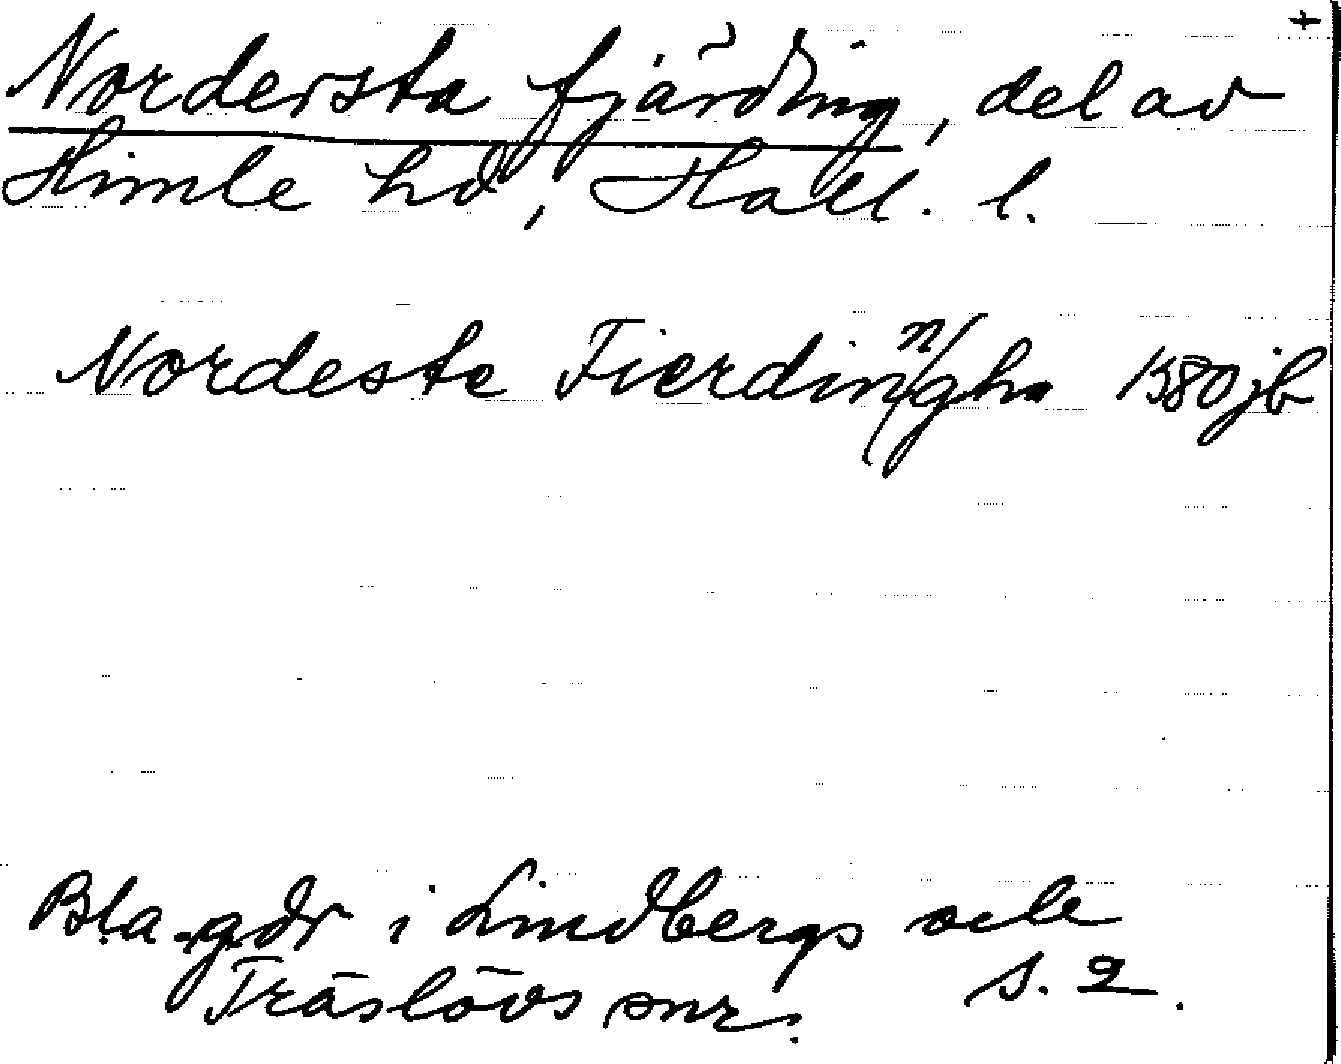 +
Nordersta fjärding, del av
Himle hd, Hall. l.
Nordeste Fierdin n/gha 1580 jb
Bl.a. gdr i Lindbergs och
Träslövs snr. s. 2.